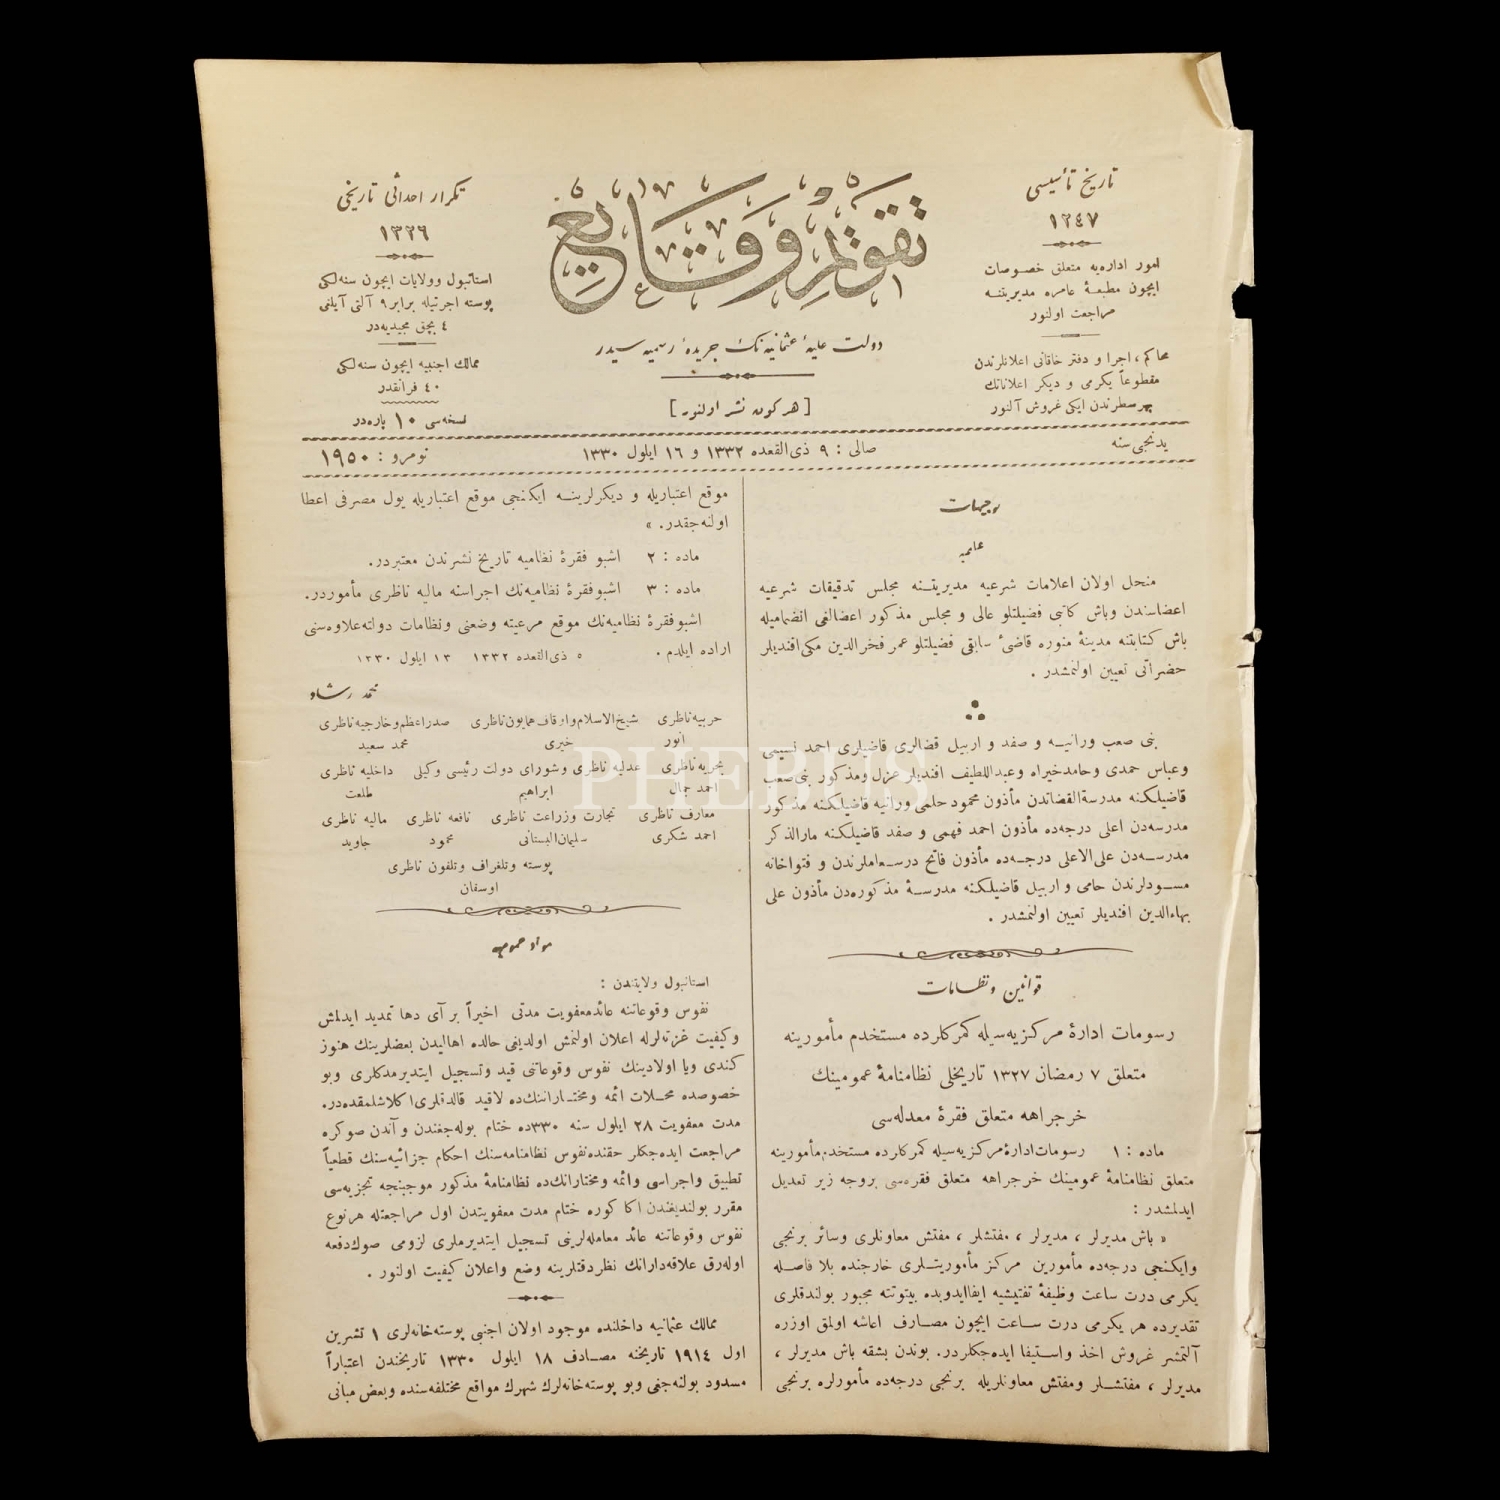 تاريخ تأسيسى
١٢٤٧
امور اداره‌يه متعلق خصوصات
ايچون مطبعۀ عامره مديريتنه
مراجعت اولنور
محاكم ، اجرا و دفتر خاقانى اعلانلرندن
مقطوعاً يكرمى و ديكر اعلاناتك
بهر سطرندن ايكى غروش آلنور
تقويم وقايع
دولت عليۀ عثمانيه نك جريدۀ رسميه سيدر
[ هر كون نشر اولنور ]
تكرار احداثى تاريخى
١٣٢٦
استانبول وولايات ايچون سنه لكى
پوسته اجرتيله برابر ٩ آلتى آيلغى
٤ بچق مجيديه در
ممالك اجنبيه ايچون سنه لكى
٤٠ فرانقدر
نسخه سى ١٠ پاره در
يدنجى سنه
صالى : ٩ ذى القعده ١٣٣٢ و ١٦ ايلول ١٣٣٠
نومرو : ١٩٥٠
توجيهات
علميه
منحل اولان اعلامات شرعيه مديريتنه مجلس تدقيقات شرعيه
اعضاسندن وباش كاتبى فضيلتلو عالى و مجلس مذكور اعضالغى انضماميله
باش كتابتنه مدينۀ منوره قاضئ سابقى فضيلتلو عمر فخرالدين مكى افنديلر
حضراتى تعيين اولنمشدر .
بنى صعب ورانيه و صفد و اربيل قضالرى قاضيلرى احمد نسيمى
وعباس حمدى وحامد خيراه وعبداللطيف افنديلر عزل ومذكور بنى صعب
قاضيلكنه مدرسة القضاتدن مأذون محمود حلمى ورانيه قاضيلكنه مذكور
مدرسه دن اعلى درجه ده مأذون احمد فهمى و صفد قاضيلكنه مارالذكر
مدرسه دن على الاعلى درجه ده مأذون فاتح درسعاملرندن و فتواخانه
مسودلرندن حامى و اربيل قاضيلكنه مدرسۀ مذكوره دن مأذون على
بهاءالدين افنديلر تعيين اولنمشدر .
قوانين ونظامات
رسومات ادارۀ مركزيه سيله كمركلرده مستخدم مأمورينه
متعلق ٧ رمضان ١٣٢٧ تاريخلى نظامنامۀ عمومينك
خرجراهه متعلق فقرۀ معدله سى
ماده : ١ رسومات ادارۀ مركزيه سيله كمركلرده مستخدم مأمورينه
متعلق نظامنامۀ عمومينك خرجراهه متعلق فقره سى بروجه زير تعديل
ايدلمشدر :
« باش مديرلر ، مديرلر ، مفتشلر ، مفتش معاونلرى وسائر برنجى
وايكنجى درجه ده مأمورين مركز مأموريتلرى خارجنده بلا فاصله
يكرمى درت ساعت وظيفۀ تفتيشيه ايفا ايدوبده بيتوتته مجبور بولندقلرى
تقديرده هر يكرمى درت ساعت ايچون مصارف اعاشه اولمق اوزره
آلتمشر غروش اخذ واستيفا ايده جكلردر . بوندن بشقه باش مديرلر ،
مديرلر ، مفتشلر ومفتش معاونلريله برنجى درجه ده مأمورلره برنجى
موقع اعتباريله و ديكرلرينه ايكنجى موقع اعتباريله يول مصرفى اعطا
اولنه جقدر . »
ماده : ٢ اشبو فقرۀ نظاميه تاريخ نشرندن معتبردر .
ماده : ٣ اشبو فقرۀ نظاميه نك اجراسنه ماليه ناظرى مأموردر .
اشبو فقرۀ نظاميه نك موقع مرعيته وضعنى ونظامات دولته علاوه سنى
اراده ايلدم . ٥ ذى القعده ١٣٣٢ ١٣ ايلول ١٣٣٠
محمد رشاد
حربيه ناظرى شيخ الاسلام واوقاف همايون ناظرى صدراعظم وخارجيه ناظرى
انور خيرى محمد سعيد
بحريه ناظرى عدليه ناظرى وشوراى دولت رئيسى وكيلى داخليه ناظرى
احمد جمال ابراهيم طلعت
معارف ناظرى تجارت وزراعت ناظرى نافعه ناظرى ماليه ناظرى
احمد شكرى سليمان البستانى محمود جاويد
پوسته وتلغراف وتلفون ناظرى
اوسقان
مواد عموميه
استانبول ولايتندن :
نفوس وقوعاتنه عائد معفويت مدتى اخيراً بر آى دها تمديد ايدلمش
وكيفيت غزته لرله اعلان اولنمش اولديغى حالده اهاليدن بعضلرينك هنوز
كندى ويا اولادينك نفوس وقوعاتنى قيد وتسجيل ايتديرمدكلرى وبو
خصوصده محلات ائمه ومختارانك ده لاقيد قالدقلرى اكلاشلمقده در .
مدت معفويت ٢٨ ايلول سنه ٣٣٠ ده ختام بوله جغندن و آندن صوكره
مراجعت ايده جكلر حقنده نفوس نظامنامه سنك احكام جزائيه سنك قطعياً
تطبيق واجراسى وائمه ومختارانك ده نظامنامۀ مذكور موجبنجه تجزيه سى
مقرر بولنديغندن اكا كوره ختام مدت معفويتدن اول مراجعتله هر نوع
نفوس وقوعاتنه عائد معامله لرينى تسجيل ايتديرملرى لزومى صوك دفعه
اوله رق علاقه دارانك نظر دقتلرينه وضع واعلان كيفيت اولنور .
ممالك عثمانيه داخلنده موجود اولان اجنبى پوسته خانه لرى ١ تشرين
اول ١٩١٤ تاريخنه مصادف ١٨ ايلول ١٣٣٠ تاريخندن اعتباراً
مسدود بولنه جغى وبو پوسته خانه لرك شهرك مواقع مختلفه سنده وبعض مبانى
PHEBUS